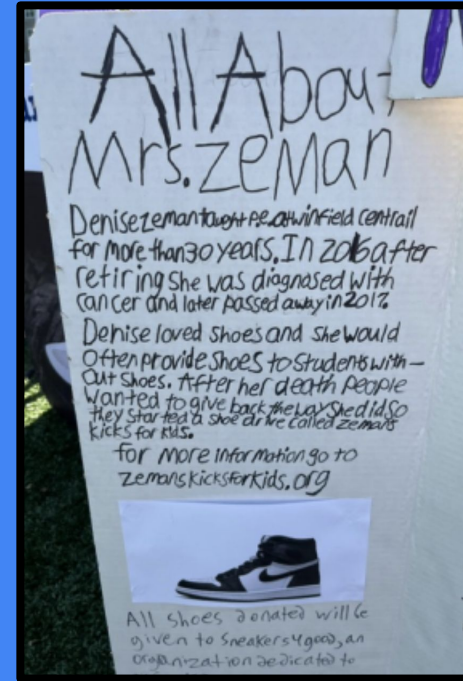 All About
Mrs. Zeman
Denise zeman taught P.E. at winfield centrail
for more than 30 years. In 2016 after
retiring she was diagnosed with
cancer and later passed away in 2017.
Denise loved shoes and she would
often provide shoes to students with-
out shoes. After her death people
wanted to give back the way she did so
they started a shoe drive called zemans
kicks for kids.
for more information go to
zemanskicksforkids.org
All shoes donated will be
given to sneakers4good, an
organization dedicated to